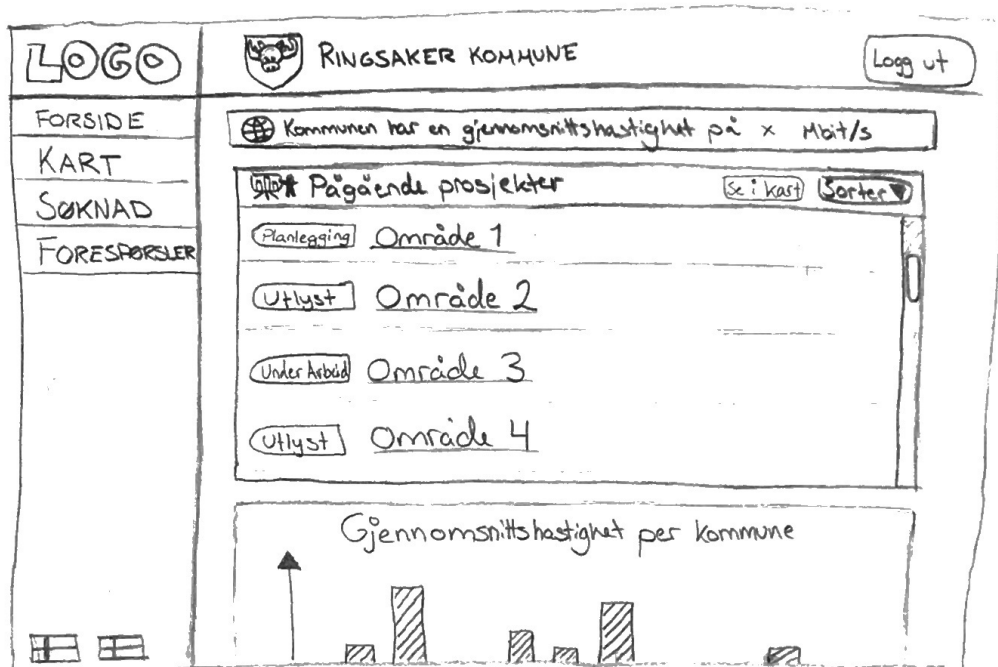 LOGO
RINGSAKER KOMMUNE
Logg ut
FORSIDE
KART
SØKNAD
FORESPØRSLER
Kommunen har en gjennomsnittshastighet på x Mbit/s
Pågående prosjekter
Se i kart
Sorter
Planlegging Område 1
Utlyst Område 2
Under Arbeid Område 3
Utlyst Område 4
Gjennomsnittshastighet per kommune